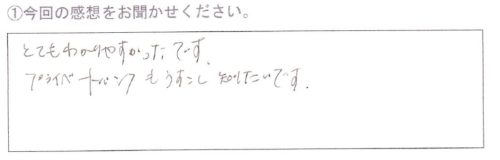 ①今回の感想をお聞かせください。
とてもわかりやすかったです。
プライベートバンクもうすこし知りたいです。